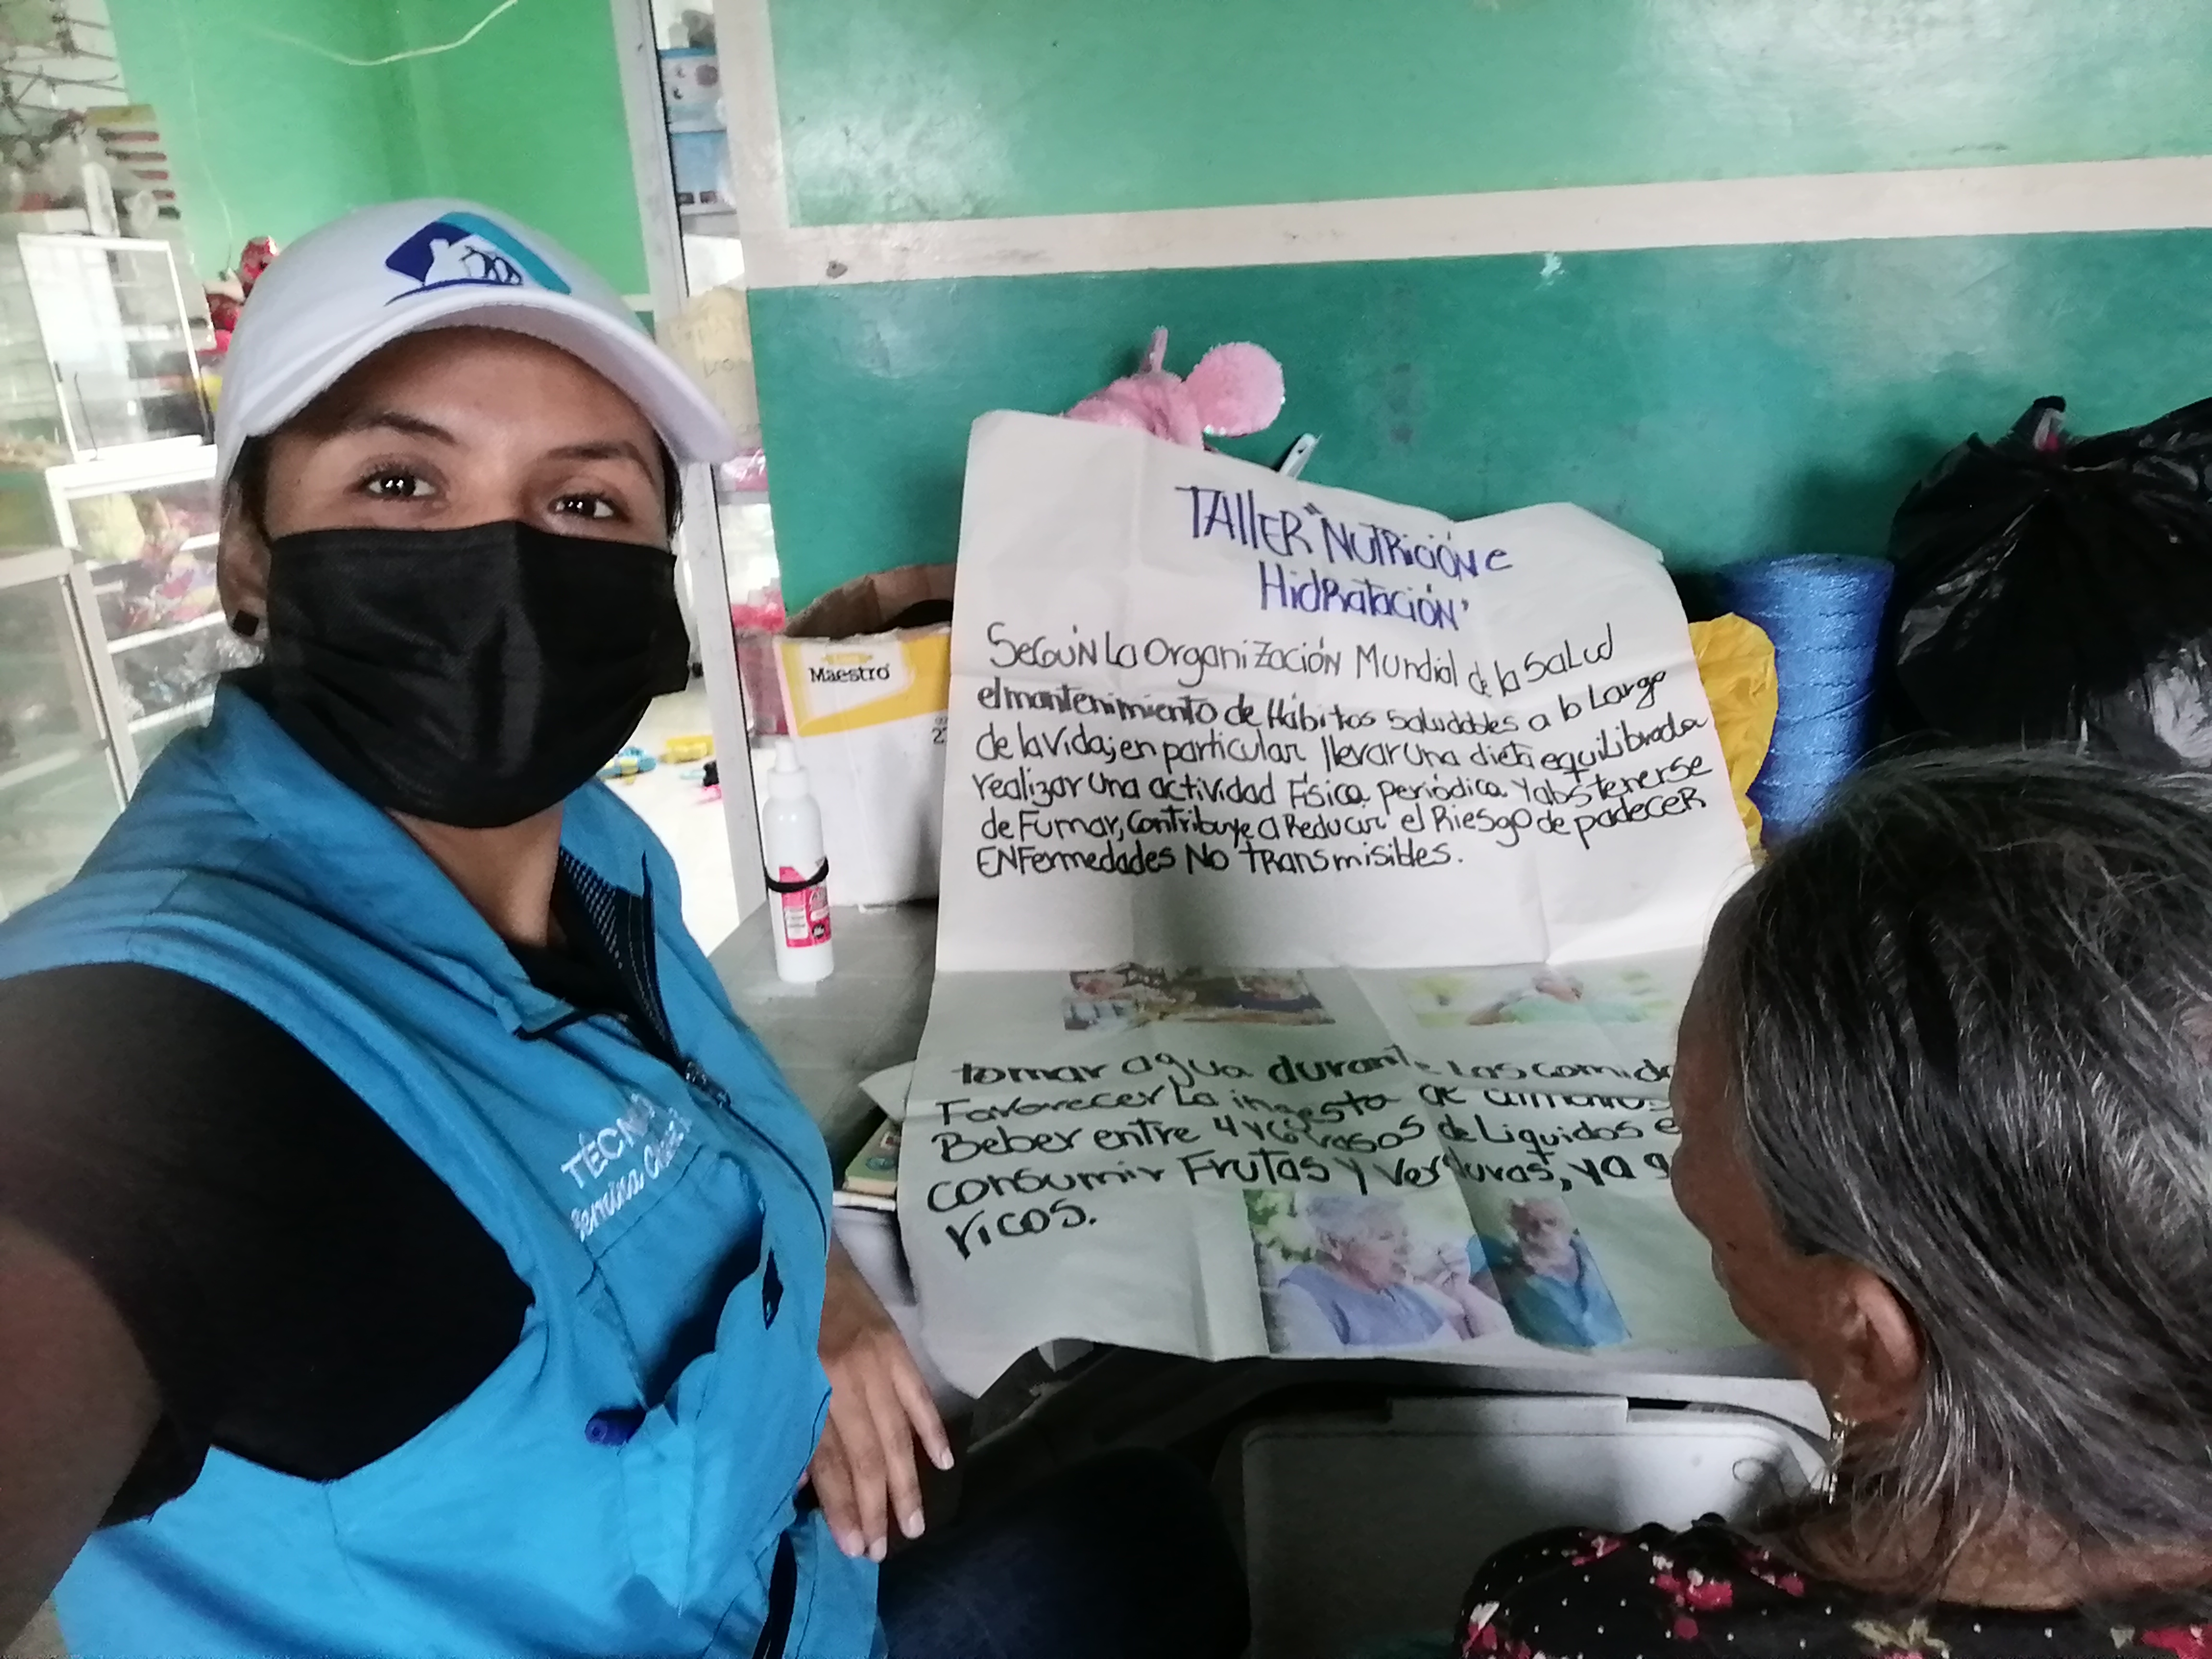 TALLER "NUTRICIÓN e
HidRatación"
SEGÚN La OrganiZación Mundial de la SaLud
el mantenimiento de Hábitos saludables a lo Largo
de la Vida, en particular llevar una dieta equilibrada
realizar una actividad Física periódica y abstenerse
de Fumar, contribuye a Reducir el Riesgo de padeceR
ENFermedades No transmisibles.
tomar agua durante las comida
Favorecer La ingesta de alimentos
Beber entre 4 y 6 vasos de Liquidos e
consumir Frutas y Verduras, ya q
ricos.
Maestro
TÉCN